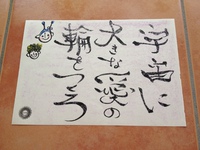 宇宙に
大きな感謝の
輪をつくろう